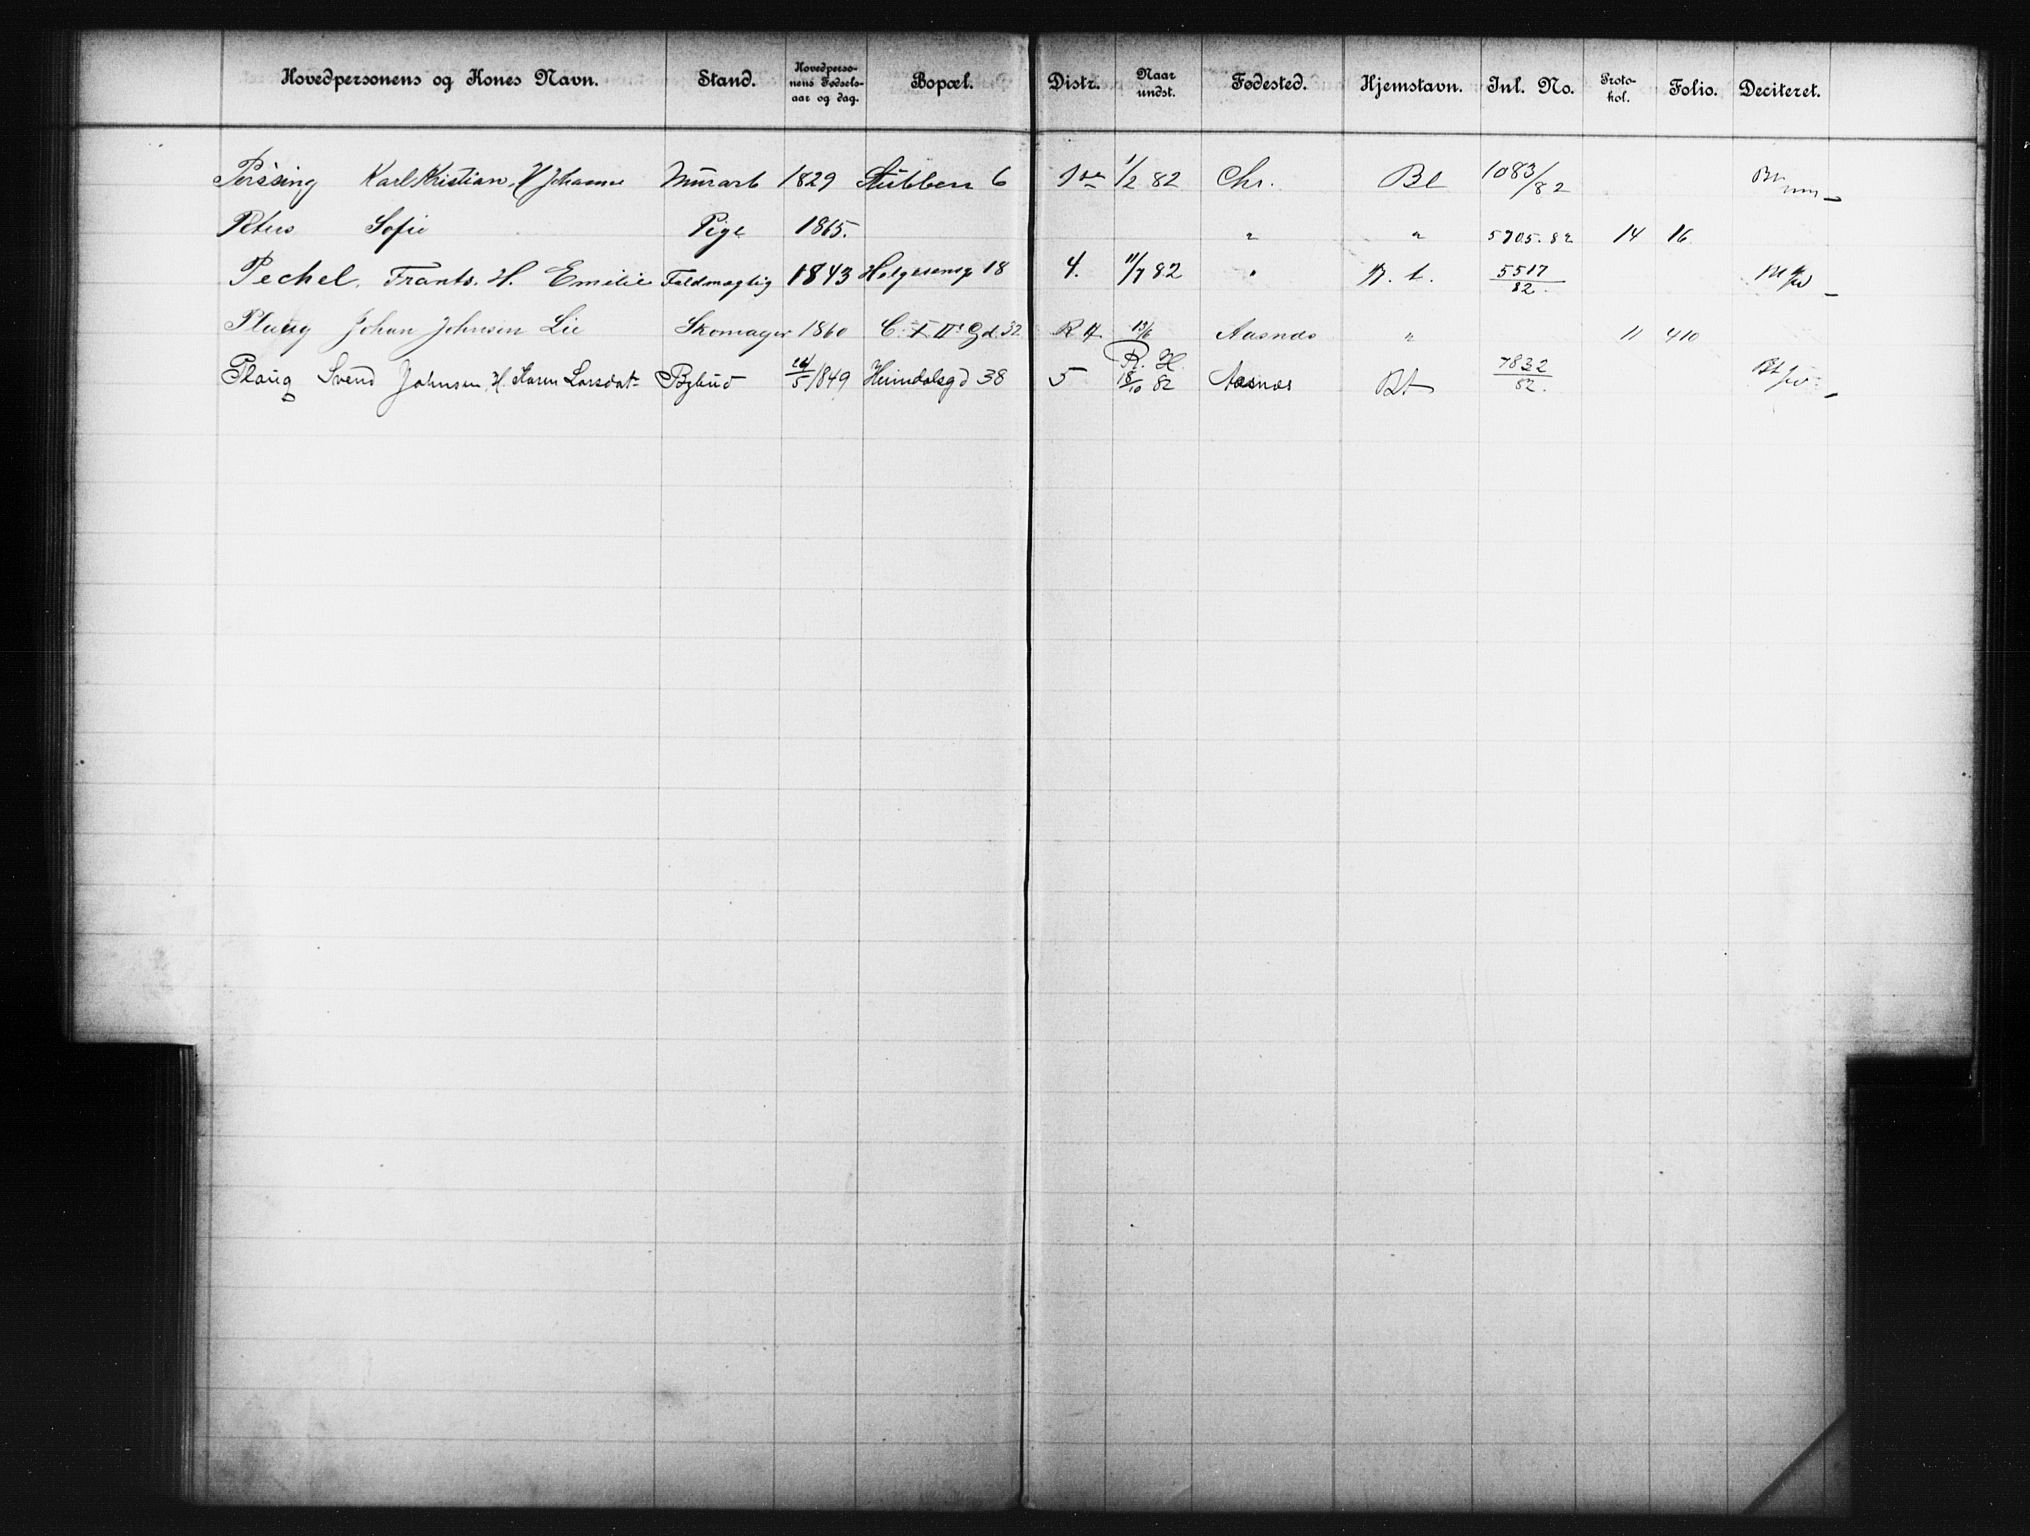 Hovedpersonens og Kones Navn. Stand. Hovedpersonens Fødselsaar og dag. Bopæl. Distr. Naar undst. Fødested. Hjemstavn. Inl. No. Protokol. Folio. Deciteret.
Perssing Karl Kristian, H Johanne Murarb 1829 Stubben 6 1/2 82 Chr. Bl 1083/82
Peters Sofie Pige 1865. " " 5705. 82 14 16
Pechel, Frants. H. Emilie Fuldmægtig 1843 Helgesensg 18 4. 11/7 82 " B. t. 5517/82.
Plaug Johan Johnsen Lie Skomager 1860 C. I IIs Gd. 32 R H 13/6 Aasnæs " 11 410
R. H.
Plaug Svend Johnsen, H. Karen Larsdat- Bybud 24/5 1849 Heimdalsgd 38 5 18/10 82 Aasnæs Bt 7832/82.